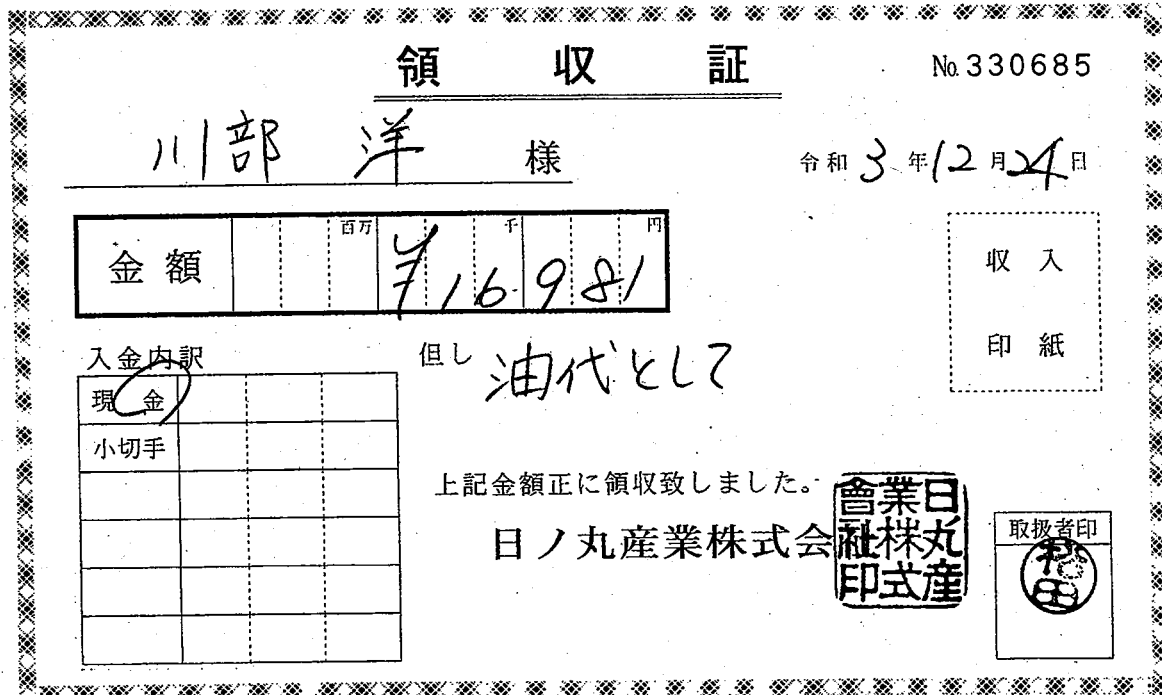 領収証
No.330685
川部 洋 様
令和3年12月24日
金額 百万 千 円
¥16981
入金内訳
現金
小切手
但し 油代として
収入
印紙
上記金額正に領収致しました。
日ノ丸産業株式会社
日丸産業株式會社印
取扱者印